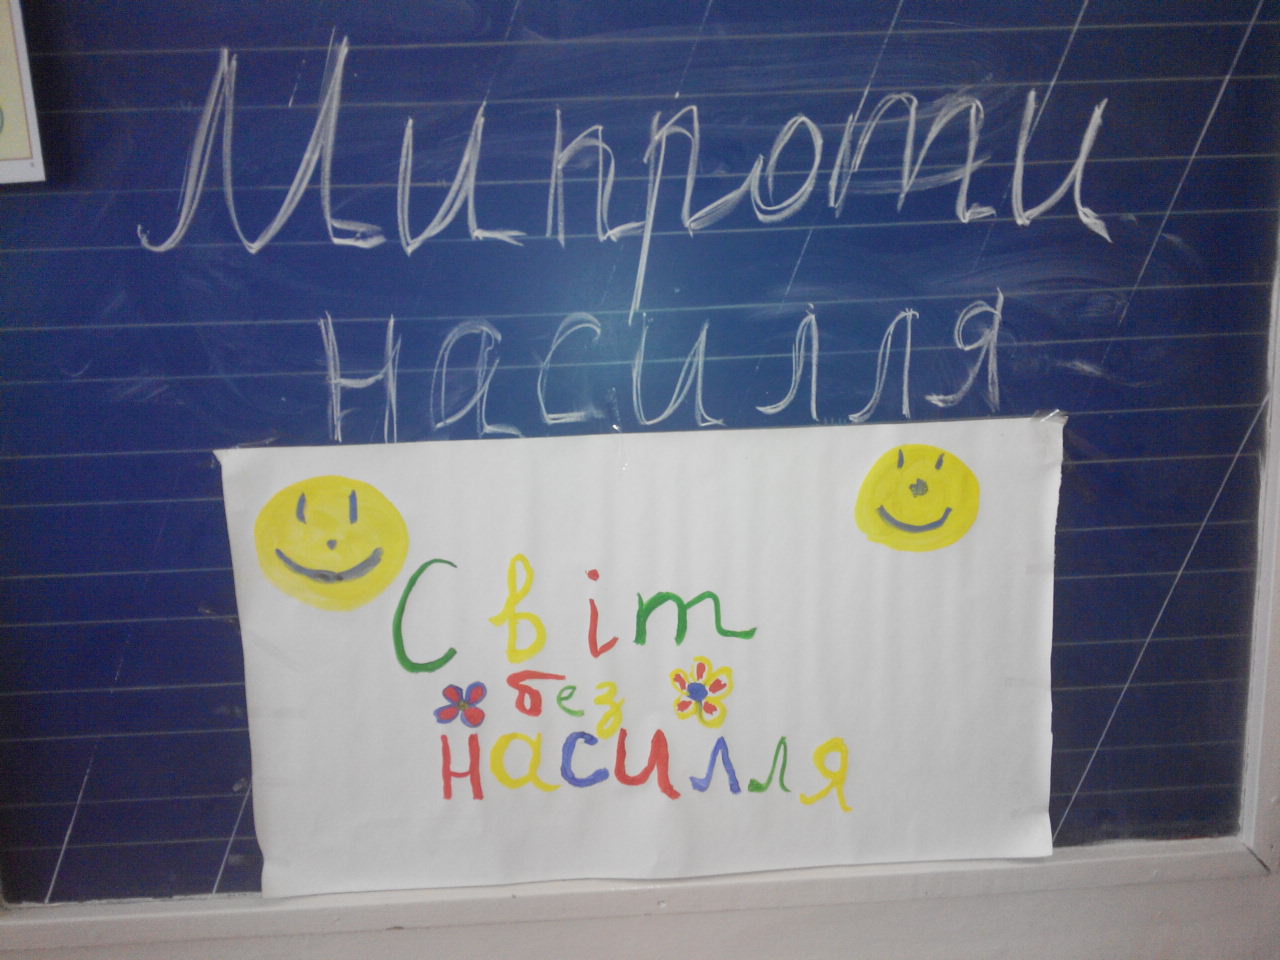 Ми проти
насилля
Світ
без
насилля